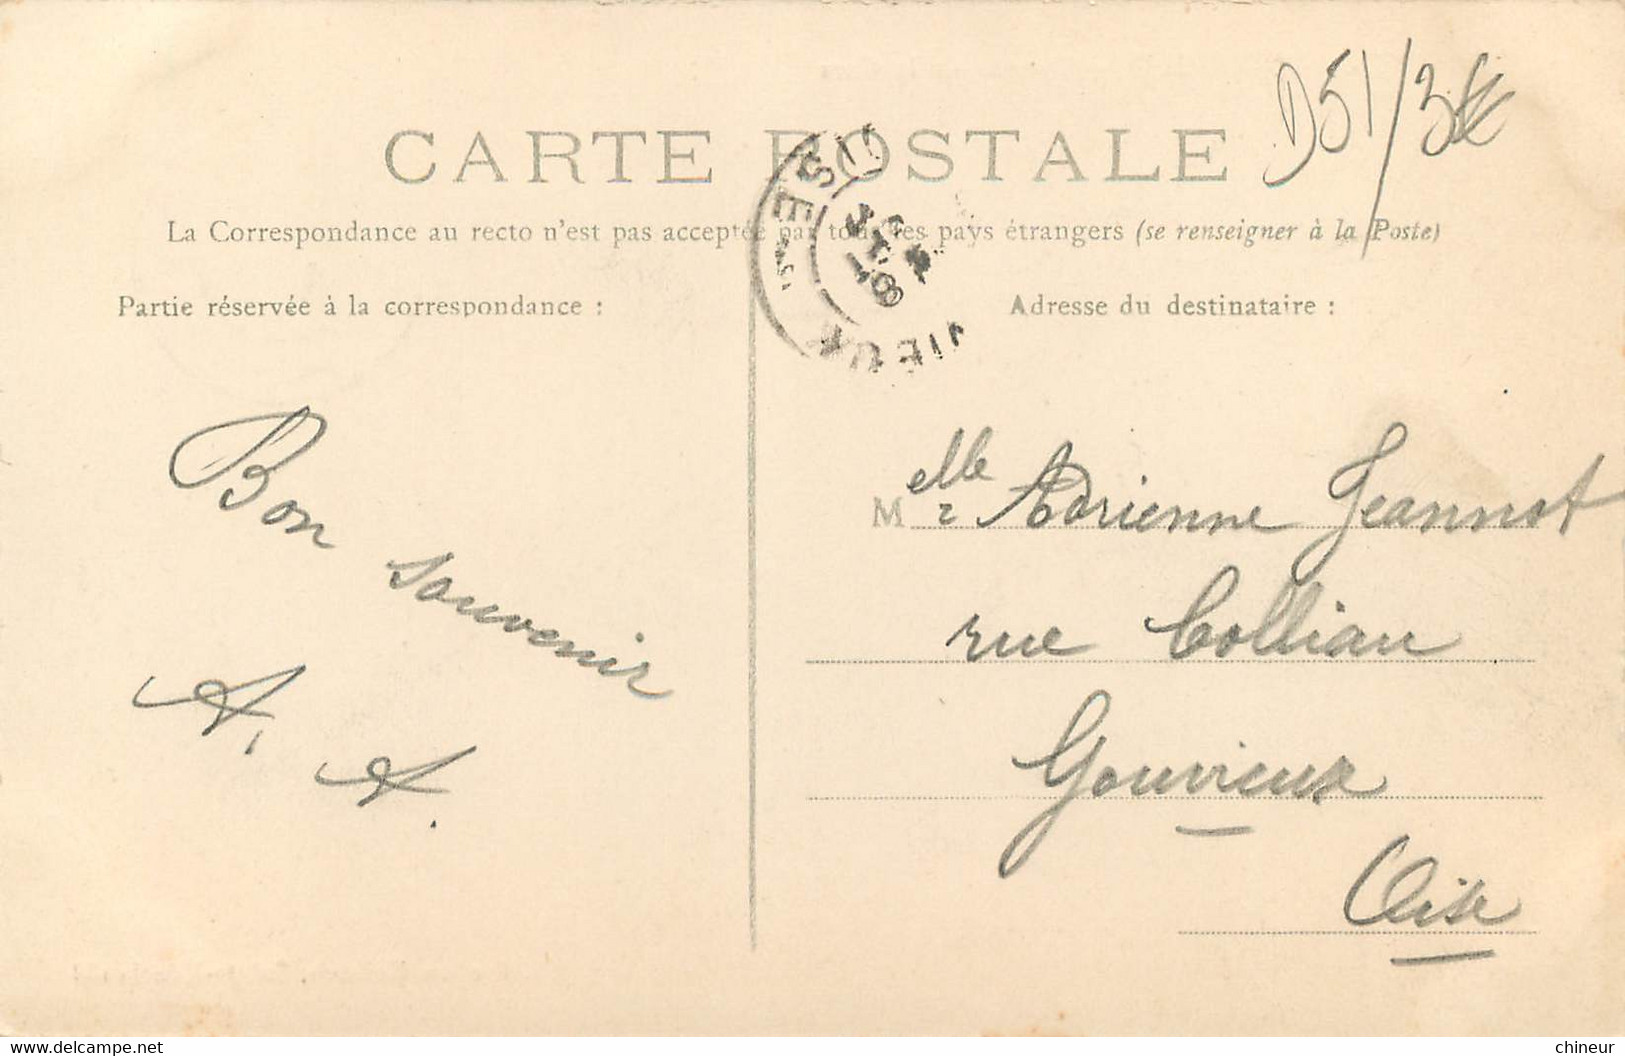 D51/3€
CARTE POSTALE
La Correspondance au recto n'est pas acceptée par tous les pays étrangers (se renseigner à la Poste)
Partie réservée à la correspondance :
Adresse du destinataire :
Bon souvenir
A. A.
Melle Adrienne Jeannot
rue Collian
Gouvieux
Oise
www.delcampe.net
chineur